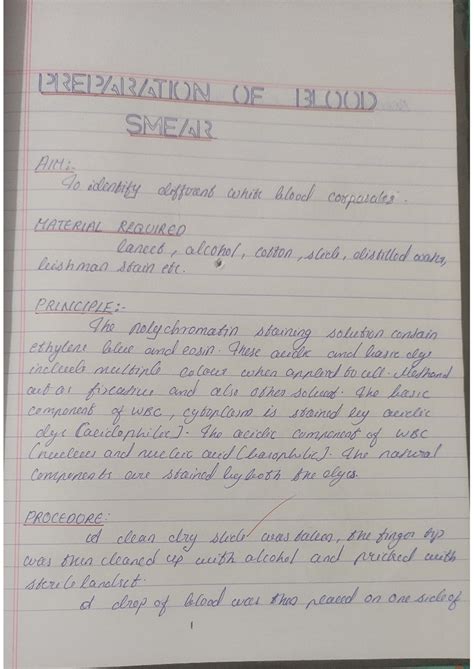 PREPARATION OF BLOOD
SMEAR
AIM:-
To identify diffrent white blood corpuscles.
MATERIAL REQUIRED
lancet, alcohol, cotton, slide, distilled water,
leishman stain etc.
PRINCIPLE:-
The polychromatin staining solution contain
ethylene blue and eosin. These acidic and basic dye
include multiple colour when applied to cell. Methanol
act as fixative and also other solvent. The basic
component of WBC, cytoplasm is stained by acidic
dye [acidophilic]. The acidic component of WBC
[nucleus and nucleic acid [basophilic]. The natural
components are stained by both the dyes.
PROCEDORE:
A clean dry slide was taken, the finger tip
was then cleaned up with alcohol and pricked with
sterile landset.
A drop of blood was then placed on one side of
1